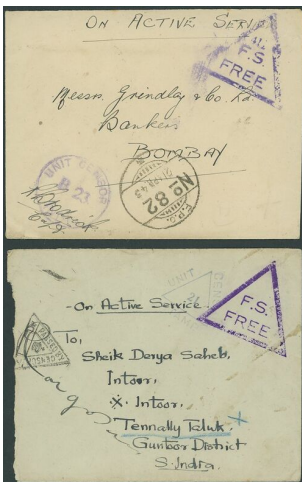 ON ACTIVE SERVICE
F.S.
FREE
Messrs. Grindlay & Co. Ld.
Bankers
BOMBAY
UNIT CENSOR
B 23
F.P.O.
No. 82
F.S.
FREE
UNIT
On Active Service
To,
Sheik Derya Saheb,
Intoor,
Intoor.
Tennally Taluk.
Guntoor District
S. India.